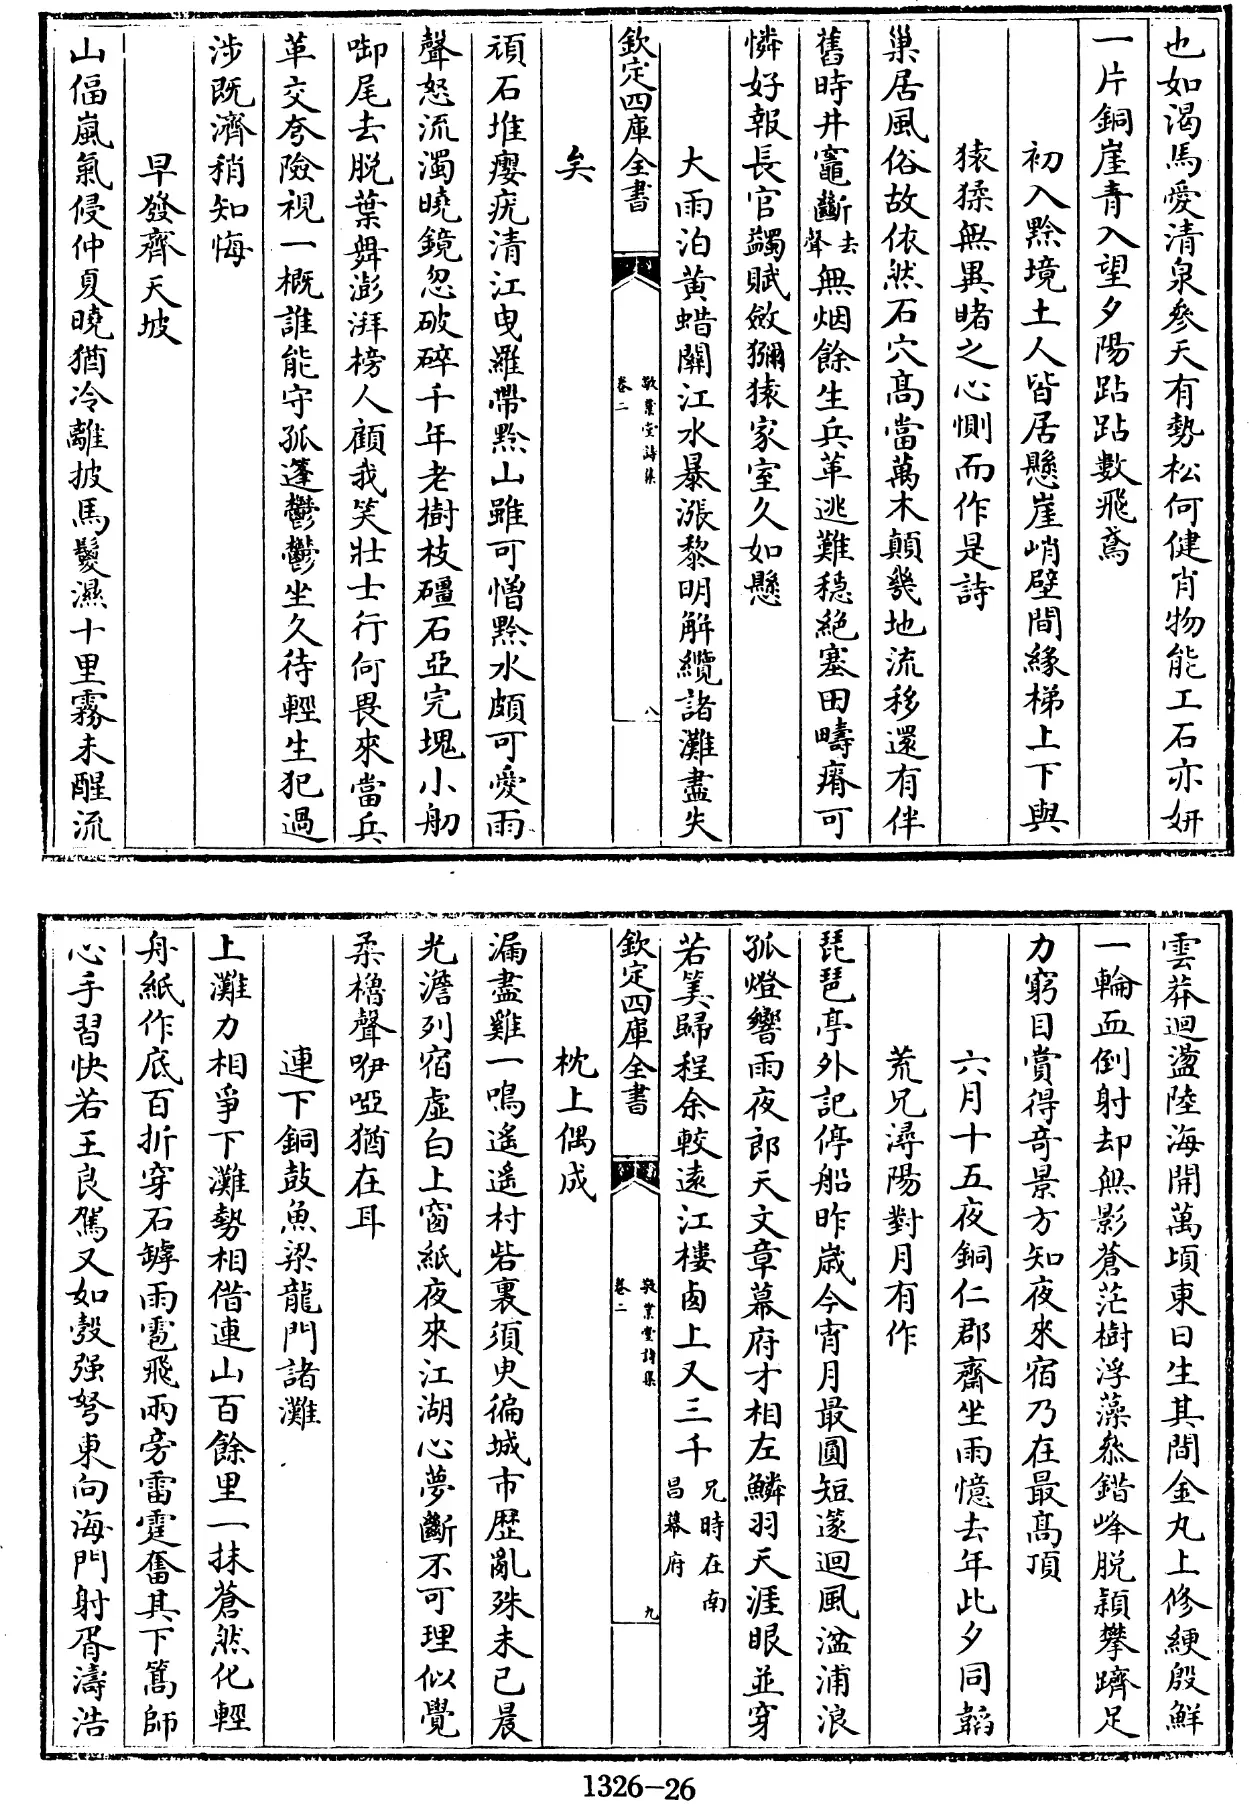 也如渴馬愛清泉參天有勢松何健肖物能工石亦妍
一片銅崖青入望夕陽跕跕數飛鳶
初入黔境土人皆居懸崖峭壁間緣梯上下與
猿猱無異睹之心惻而作是詩
巢居風俗故依然石穴髙當萬木顛幾地流移還有伴
舊時井竈斷去聲無烟餘生兵革逃難穩絶塞田疇瘠可
憐好報長官蠲賦斂獮猿家室久如懸
大雨泊黄蜡關江水暴漲黎明解纜諸灘盡失
欽定四庫全書
敬業堂詩集
卷二
八
矣
頑石堆癭疣清江曳羅帶黔山雖可憎黔水頗可愛雨
聲怒流濁曉鏡忽破碎千年老樹枝礓石亞完塊小舠
啣尾去脱葉舞澎湃榜人顧我笑壯士行何畏來當兵
革交夸險視一概誰能守孤蓬鬱鬱坐久待輕生犯過
涉既濟稍知悔
早發齊天坡
山偪嵐氣侵仲夏曉猶冷離披馬鬉濕十里霧未醒流
雲莽迴盪陸海開萬頃東日生其間金丸上修綆殷鮮
一輪血倒射却無影蒼茫樹浮藻叅錯峰脱穎攀躋足
力窮目賞得奇景方知夜來宿乃在最髙頂
六月十五夜銅仁郡齋坐雨憶去年此夕同韜
荒兄潯陽對月有作
琵琶亭外記停船昨歳今宵月最圓短篴迴風湓浦浪
孤燈響雨夜郎天文章幕府才相左鱗羽天涯眼並穿
若筭歸程余較遠江樓鹵上又三千兄時在南昌幕府
欽定四庫全書
敬業堂詩集
卷二
九
枕上偶成
漏盡雞一鳴遥遥村砦裏須臾徧城市歴亂殊未已晨
光澹列宿虚白上窗紙夜來江湖心夢斷不可理似覺
柔櫓聲咿啞猶在耳
連下銅鼓魚梁龍門諸灘
上灘力相爭下灘勢相借連山百餘里一抹蒼然化輕
舟紙作底百折穿石罅雨雹飛兩旁雷霆奮其下篙師
心手習快若王良駕又如彀强弩東向海門射胥濤浩
1326-26